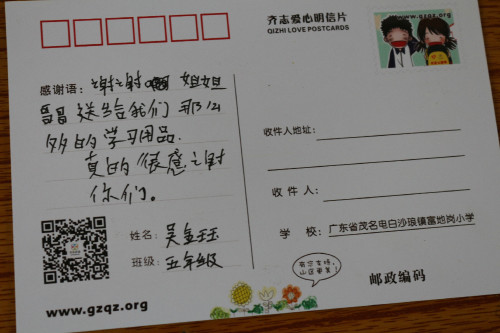 齐志爱心明信片
QIZHI LOVE POSTCARDS
www.gzqz.org
感谢语：谢谢 姐姐
哥哥送给我们那么
多的学习用品.
真的很感谢
你们。
姓名：吴金珏
班级：五年级
www.gzqz.org
收件人地址：
收 件 人：
学 校：广东省茂名电白沙琅镇富地岗小学
有您支持，
山区更美！
邮政编码